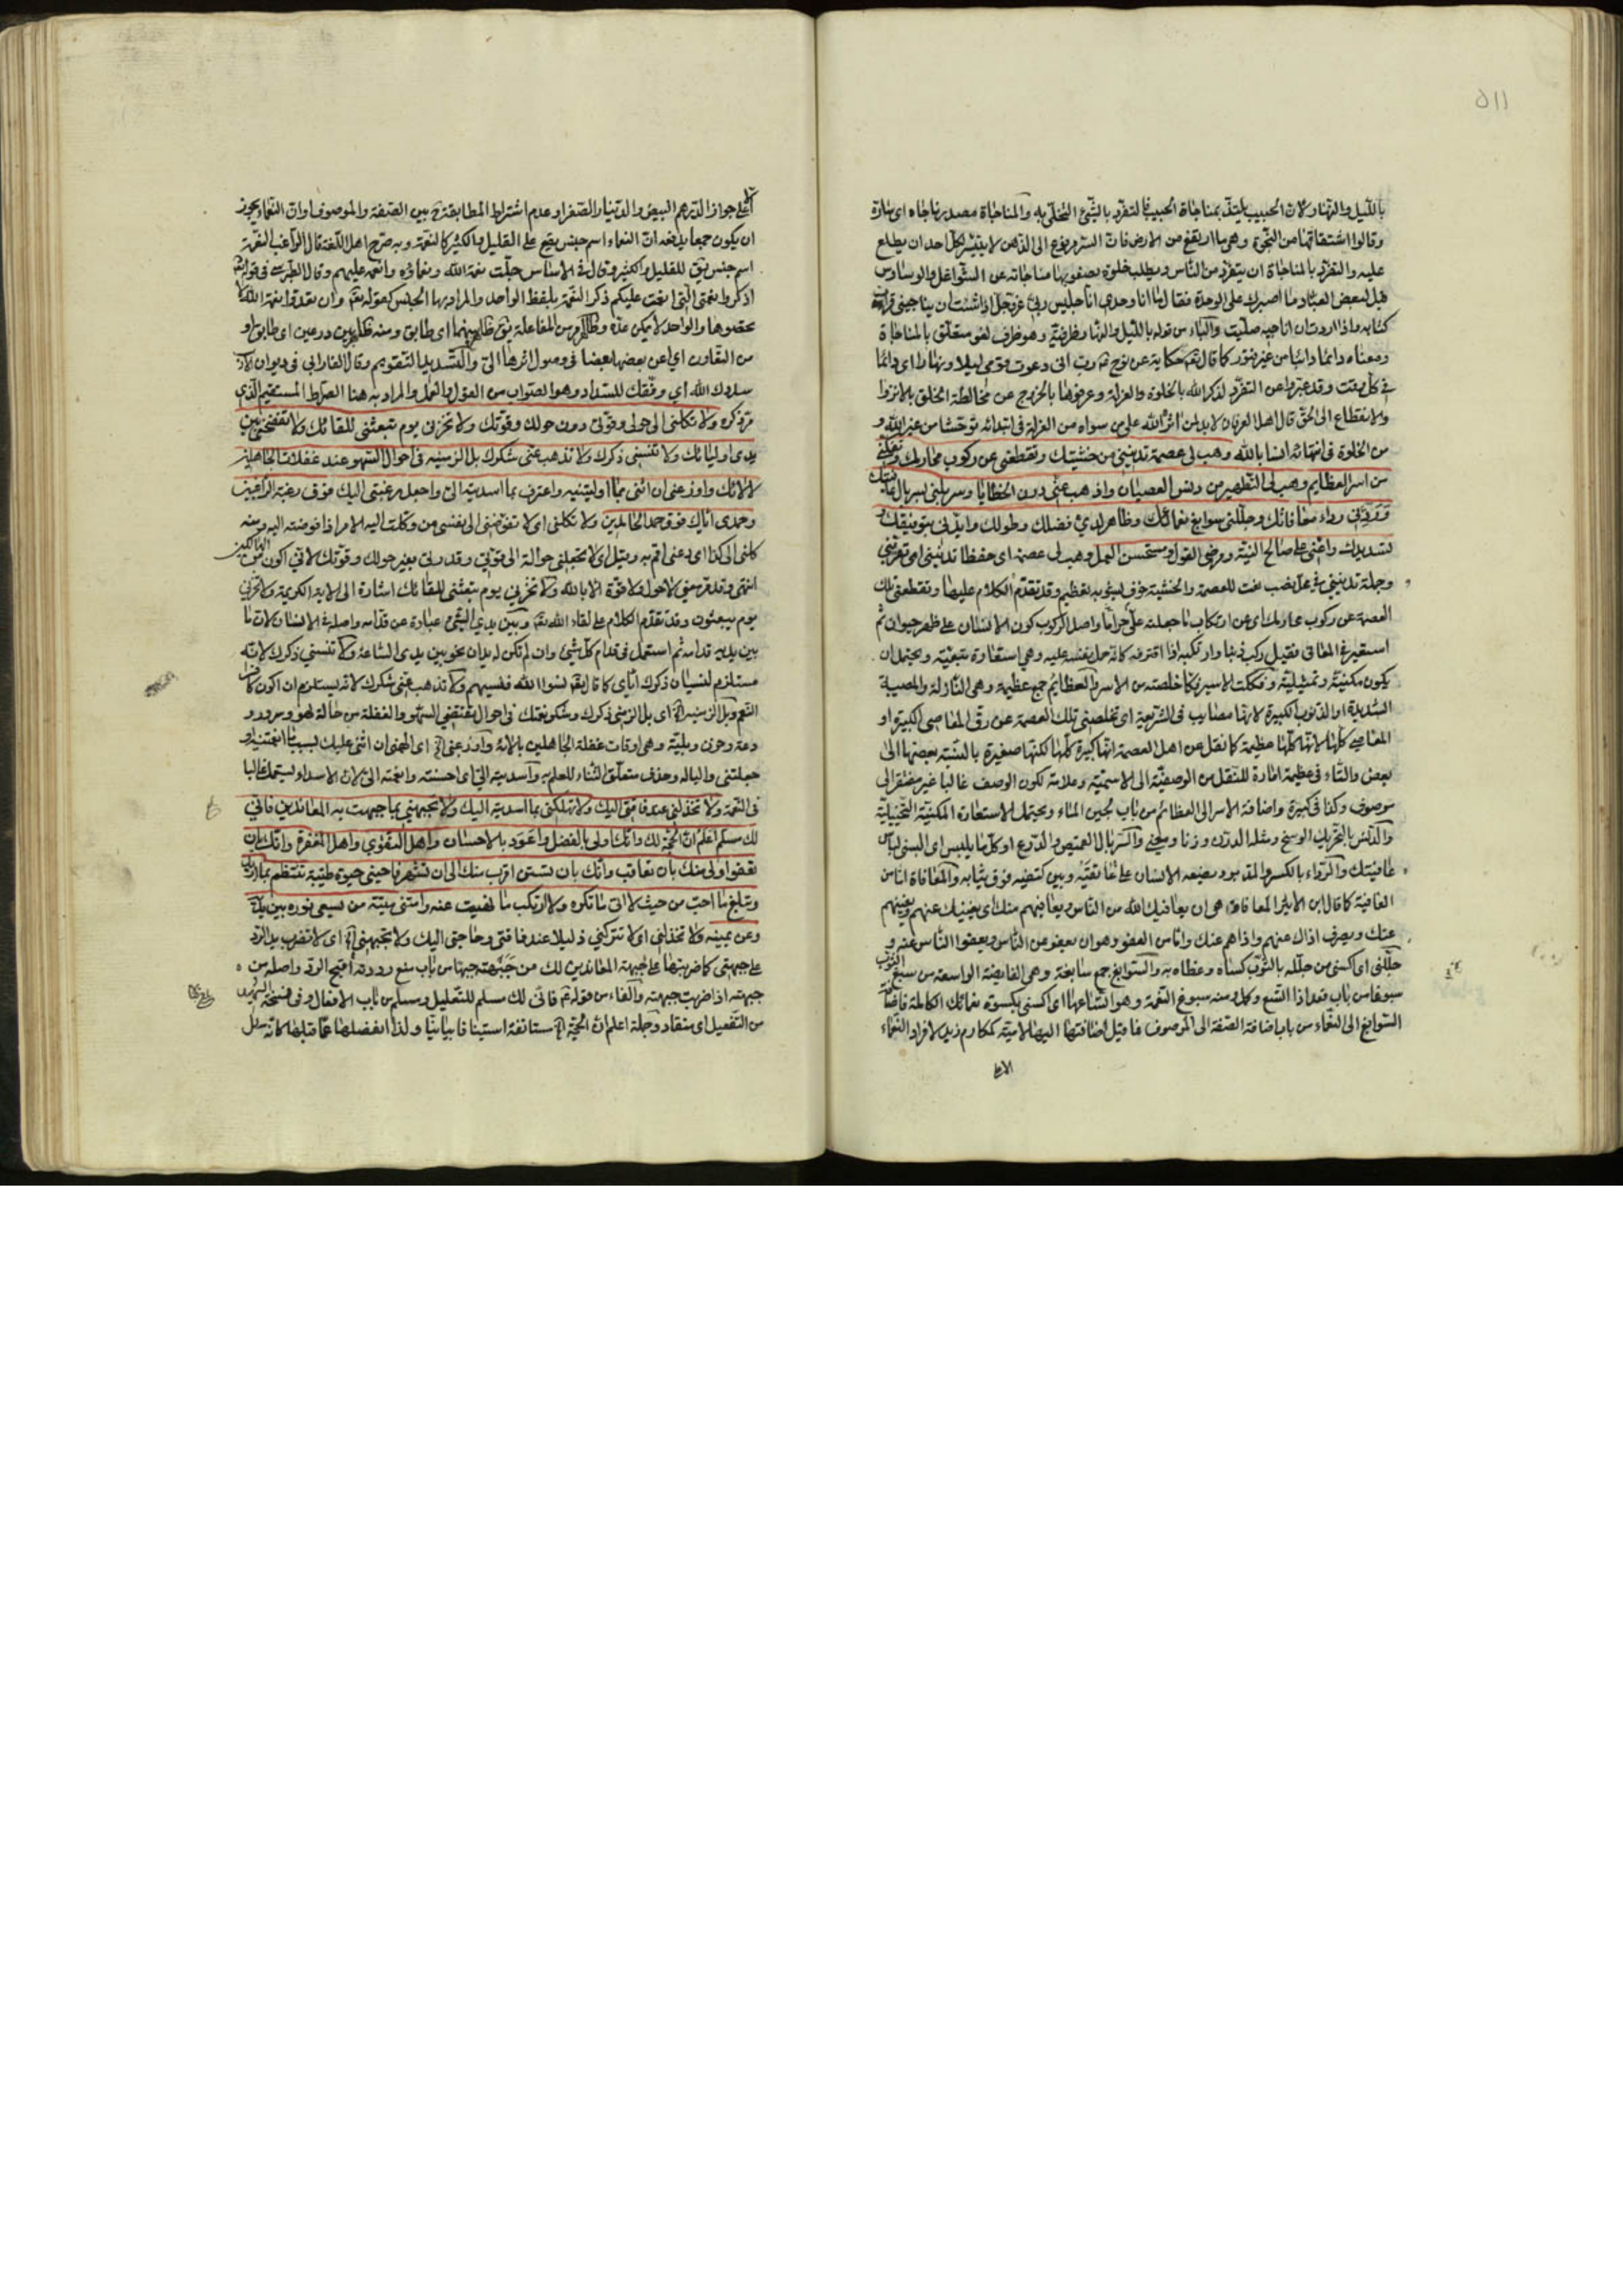 ٥١١
بالليل والنهار لان الحبيب يلتذ بمناجاة الحبيب فالتفرد بالشيء التخلي به والمناجاة مصدر ناجاه اي ساره
وقالوا اشتقاقها من النجوة وهي ما ارتفع من الارض فان السر مرفوع الى الذهن لا يتيسر لكل احد ان يطلع
عليه والتفرد بالمناجاة ان يتفرد من الناس ويطلب خلوة يصفو بها مناجاته عن الشواغل والوساوس
قيل لبعض العباد ما اصبرك على الوحدة فقال ما انا وحدي انا جليس ربي عز وجل اذا شئت ان يناجيني قرات
كتابه واذا اردت ان اناجيه صليت والباء من قوله بالليل والنهار ظرفية وهو ظرف لغو متعلق بالمناجاة
ومعناه دائما دائبا من غير فتور كما قال تعه حكاية عن نوح رب اني دعوت قومي ليلا ونهارا اي دائما
في كل وقت وقد عبروا عن التفرد لذكر الله بالخلوة والعزلة وعرفوها بالخروج عن مخالطة الخلق بالانزوا
والانقطاع الى الحق قال اهل العرفان لا بد لمن اثر الله على من سواه من العزلة في ابتدائه توحشا من غير الله و
من الخلوة في انتهائه انسا بالله وهب لي عصمة تدنيني من خشيتك وتقطعني عن ركوب محارمك وتفكني
من اسر العظايم وهب لي التطهير من دنس العصيان واذهب عني درن الخطايا وسربلني بسربال عافيتك
وردني رداء معافاتك وجللني سوابغ نعمائك وظاهر لدي فضلك وطولك وايدني بتوفيقك و
تسديدك واعني على صالح النية ومرضي القول ومستحسن العمل وهب لي عصمة اي حفظا تدنيني اي تقربني
وجملة تدنيني في محل نصب نعت للعصمة والخشية خوف يشوبه تعظيم وقد تقدم الكلام عليها وتقطعني تلك
العصمة عن ركوب محارمك اي عن ارتكاب ما جعلته علي حراما واصل الركوب كون الانسان على ظهر حيوان ثم
استعير في المعاني فقيل ركب ذنبا وارتكبه اذا اقترفه كانه حمل نفسه عليه وهي استعارة تبعية ويحتمل ان
يكون مكنية وتمثيلية وفككت الاسير فكا خلصته من الاسر والعظايم جمع عظيمة وهي النازلة والمصيبة
الشديدة او الذنوب الكبيرة لانها مصايب في الشريعة اي تخلصني تلك العصمة عن رق المعاصي الكبيرة او
المعاصي كلها لانها كلها عظيمة كما نقل عن اهل العصمة انها كبيرة كلها لكنها صغيرة بالنسبة بعضها الى
بعض والتاء في عظيمة امارة للنقل من الوصفية الى الاسمية وعلامة لكون الوصف غالبا غير مفتقر الى
موصوف وكذا في كبيرة واضافة الاسر الى العظائم من باب لجين الماء ويحتمل الاستعارة المكنية التخييلية
والدنس بالتحريك الوسخ ومثله الدرن وزنا ومعنى والسربال القميص والدرع او كل ما يلبس اي البسني لباس
عافيتك والرداء بالكسر والمد برد يضعه الانسان على عاتقيه وبين كتفيه فوق ثيابه والمعافاة اما من
العافية كما قال ابن الاثير المعافاة هي ان يعافيك الله من الناس ويعافيهم منك اي يغنيك عنهم ويغنيهم
عنك ويصرف اذاك عنهم واذاهم عنك واما من العفو وهو ان يعفو عن الناس ويعفوا الناس عنه و
جللني اي اكسني من جلله بالثوب كساه وغطاه به والسوابغ جمع سابغة وهي الفايضة الواسعة من سبغ الثوب
سبوغا من باب قعد اذا اتسع وكمل ومنه سبوغ النعمة وهو اتساعها اي اكسني بكسوة نعمائك الكاملة فاضافة
السوابغ الى النعماء من باب اضافة الصفة الى الموصوف فما قيل اضافتها اليها لامية كمكارم زيد لافراد النعماء
على جواز الدرهم البيض والدينار الصفر او عدم اشتراط المطابقة ح بين الصفة والموصوف او ان النعماء يجوز
ان يكون جمعا يدفعه ان النعماء اسم جنس يقع على القليل والكثير كالنعمة وبه صرح اهل اللغة قال الراغب النعمة
اسم جنس يق للقليل والكثير وقال في الاساس جلت نعمة الله ونعماؤه وانعمه عليهم وقال الطبرسي في قوله تعه
اذكروا نعمتي التي انعمت عليكم ذكر النعمة بلفظ الواحد والمراد بها الجنس كقوله تعه وان تعدوا نعمة الله لا
تحصوها والواحد لا يمكن عده وظاهر من المفاعلة يق ظاهر بينهما اي طابق ومنه ظاهر بين درعين اي طابق او
من التعاون اي اعن بعضها بعضا في وصول اثرها الي والتسديد التقويم وقال الفارابي في ديوان الادب
سددك الله اي وفقك للسداد وهو الصواب من القول والعمل والمراد به هنا الصراط المستقيم الذي
مر ذكره ولا تكلني الى حولي وقوتي دون حولك وقوتك ولا تخزني يوم تبعثني للقائك ولا تفضحني بين
يدي اوليائك ولا تنسني ذكرك ولا تذهب عني شكرك بل الزمنيه في احوال السهو عند غفلات الجاهلين
لآلائك واوزعني ان اثني بما اوليتنيه واعترف بما اسديته الي واجعل رغبتي اليك فوق رغبة الراغبين
وحمدي اياك فوق حمد الحامدين ولا تكلني اي لا تفوضني الى نفسي من وكلت اليه الامر اذا فوضته اليه ومنه
كلني الى كذا اي دعني اقم به وقيل اي لا تجعلني حوالة الى قوتي وقدرتي بغير حولك وقوتك لاني اكون من الهالكين
انتهى وقد مر معنى لا حول ولا قوة الا بالله ولا تخزني يوم تبعثني للقائك اشارة الى الاية الكريمة ولا تخزني
يوم يبعثون وقد تقدم الكلام على لقاء الله تعه وبين يدي الشيء عبارة عن قدامه واصله في الانسان لان ما
بين يديه قدامه ثم استعمل في قدام كل شيء وان لم تكن له يدان نحو بين يدي الساعة ولا تنسني ذكرك لانه
مستلزم لنسيان ذكرك اياي كما قال تعه نسوا الله فنسيهم ولا تذهب عني شكرك لانه يستلزم ان اكون كافر
النعم وبل الزمنيه اه اي بل الزمني ذكرك وشكر نعمتك في احوال تقتضي السهو والغفلة من حالة لهو وسرور و
دعة وحزن وبلية وهي اوقات غفلة الجاهلين بآلائه واوزعني اه اي الهمني ان اثني عليك بسبب ما انعمتنيه او
جعلتني واليا له وحذف متعلق الثناء للعلم به واسديته الي اي احسنته وانعمته الي لان الاسداء يستعمل غالبا
في النعمة ولا تخذلني عند فاقتي اليك ولا تهلكني بما اسديته اليك ولا تجبهني بما جبهت به المعاندين فاني
لك مسلم اعلم ان الحجة لك وانك اولى بالفضل واعود بالاحسان واهل التقوى واهل المغفرة وانك بان
تعفو اولى منك بان تعاقب وانك بان تستر اقرب منك الى ان تشهر فاحيني حيوة طيبة تنتظم بما اريد
وتبلغ ما احب من حيث لا اتي ما تكره ولا ارتكب ما نهيت عنه وامتني ميتة من يسعى نوره بين يديه
وعن يمينه ولا تخذلني اي لا تتركني ذليلا عند فاقتي وحاجتي اليك ولا تجبهني اه اي لا تضرب يد الرد
على جبهتي كما ضربتها على جبهة المعاندين لك من جبهته جبها من باب منع رددته اقبح الرد واصله من
جبهته اذا ضربت جبهته والفاء من قوله فاني لك مسلم للتعليل ومسلم من باب الافعال وفي نسخة الشهيد
من التفعيل اي منقاد وجملة اعلم ان الحجة اه مستانفة استينافا بيانيا ولذا انفصلها عما قبلها كانه سئل